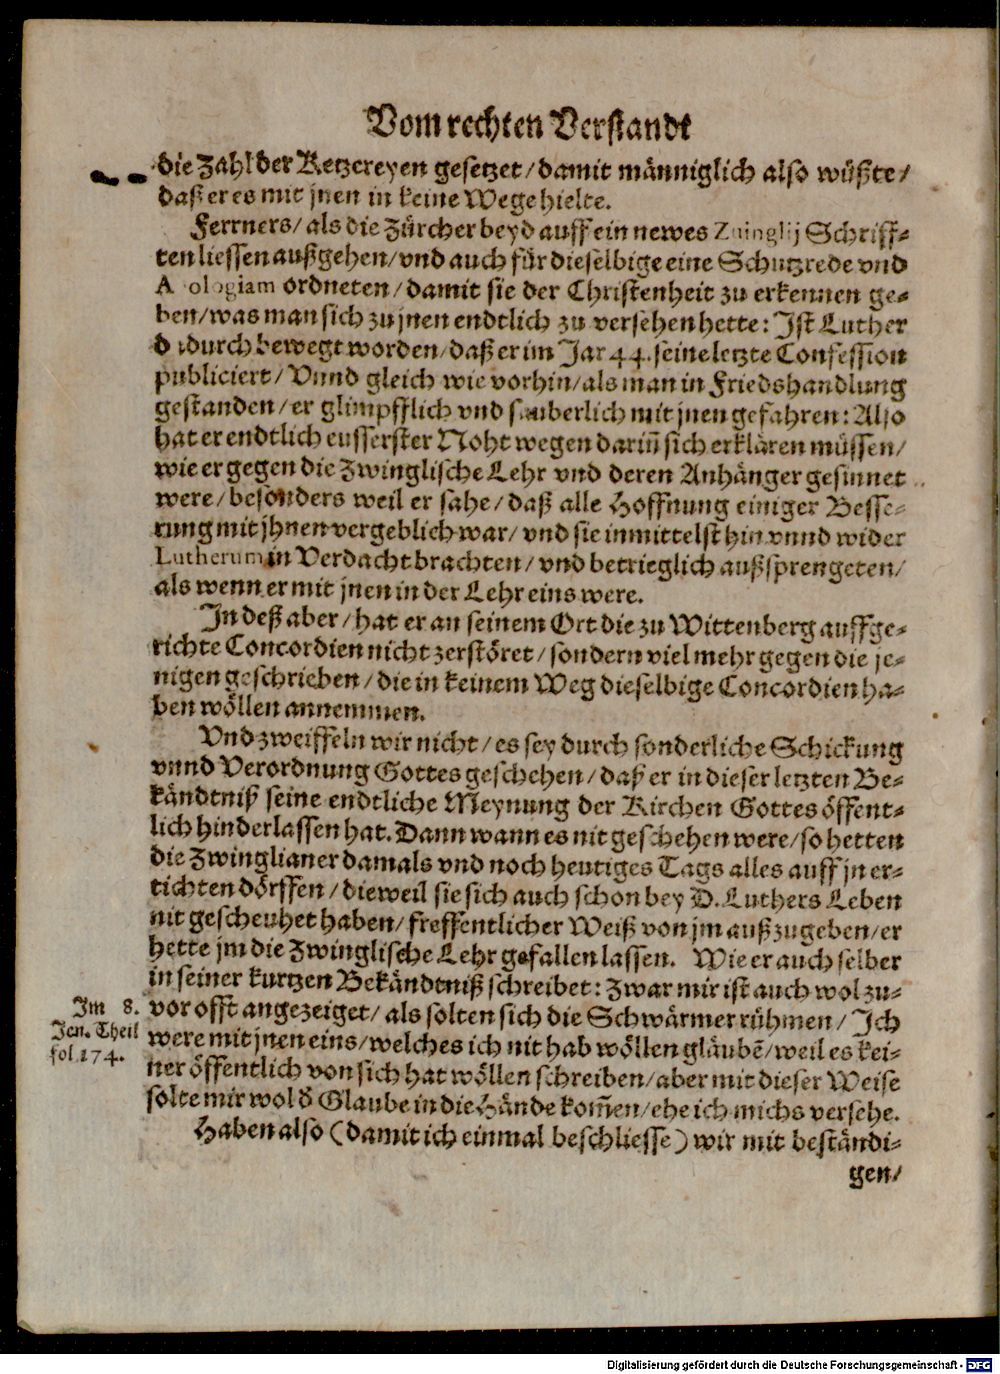 Vom rechten Verstandt
die Zahl der Ketzereyen gesetzet/ damit männiglich also wüßte/
daß er es mit jnen in keine Wege hielte.
Ferrners/ als die Zürcher beyd auff ein newes Zuinglij Schriff-
ten liessen außgehen/ vnd auch für dieselbige eine Schutzrede vnd
A ologiam ordneten/ damit sie der Christenheit zu erkennen ge-
ben/ was man sich zu jnen endtlich zu versehen hette: Jst Luther
d durch bewegt worden/ daß er im Jar 44. seine letzte Confession
publiciert/ Vnnd gleich wie vorhin/ als man in Friedshandlung
gestanden/ er glimpfflich vnd sauberlich mit jnen gefahren: Also
hat er endtlich eusserster Noht wegen dariñ sich erklären müssen/
wie er gegen die Zwinglische Lehr vnd deren Anhänger gesinnet
were/ besonders weil er sahe/ daß alle Hoffnung einiger Besse-
rung mit jhnen vergeblich war/ vnd sie inmittelst hin vnnd wider
Lutherum in Verdacht brachten/ vnd betrieglich außsprengeten/
als wenn er mit jnen in der Lehr eins were.
In deß aber/ hat er an seinem Ort die zu Wittenberg auffge-
richte Concordien nicht zerstöret/ sondern viel mehr gegen die je-
nigen geschrieben/ die in keinem Weg dieselbige Concordien ha-
ben wöllen annemmen.
Vnd zweiffeln wir nicht/ es sey durch sonderliche Schickung
vnnd Verordnung Gottes geschehen/ daß er in dieser letzten Be-
kändtniß seine endtliche Meynung der Kirchen Gottes öffent-
lich hinderlassen hat. Dann wann es nit geschehen were/ so hetten
die Zwinglianer damals vnd noch heutiges Tags alles auff jn er-
tichten dörffen/ dieweil sie sich auch schon bey D. Luthers Leben
nit gescheuhet haben/ freffentlicher Weiß von jm außzugeben/ er
hette jm die Zwinglische Lehr gefallen lassen. Wie er auch selber
in seiner kurtzen Bekändtniß schreibet: Zwar mir ist auch wol zu-
Im 8.
Jen. Theil
fol. 174.
vor offt angezeiget/ als solten sich die Schwärmer rühmen/ Ich
were mit jnen eins/ welches ich nit hab wöllen gläubē/ weil es kei-
ner öffentlich von sich hat wöllen schreiben/ aber mit dieser Weise
solte mir wol d̕ Glaube in die Hände kom̃en/ ehe ich michs versehe.
Haben also (damit ich einmal beschliesse) wir mit beständi-
gen/
Digitalisierung gefördert durch die Deutsche Forschungsgemeinschaft - DFG